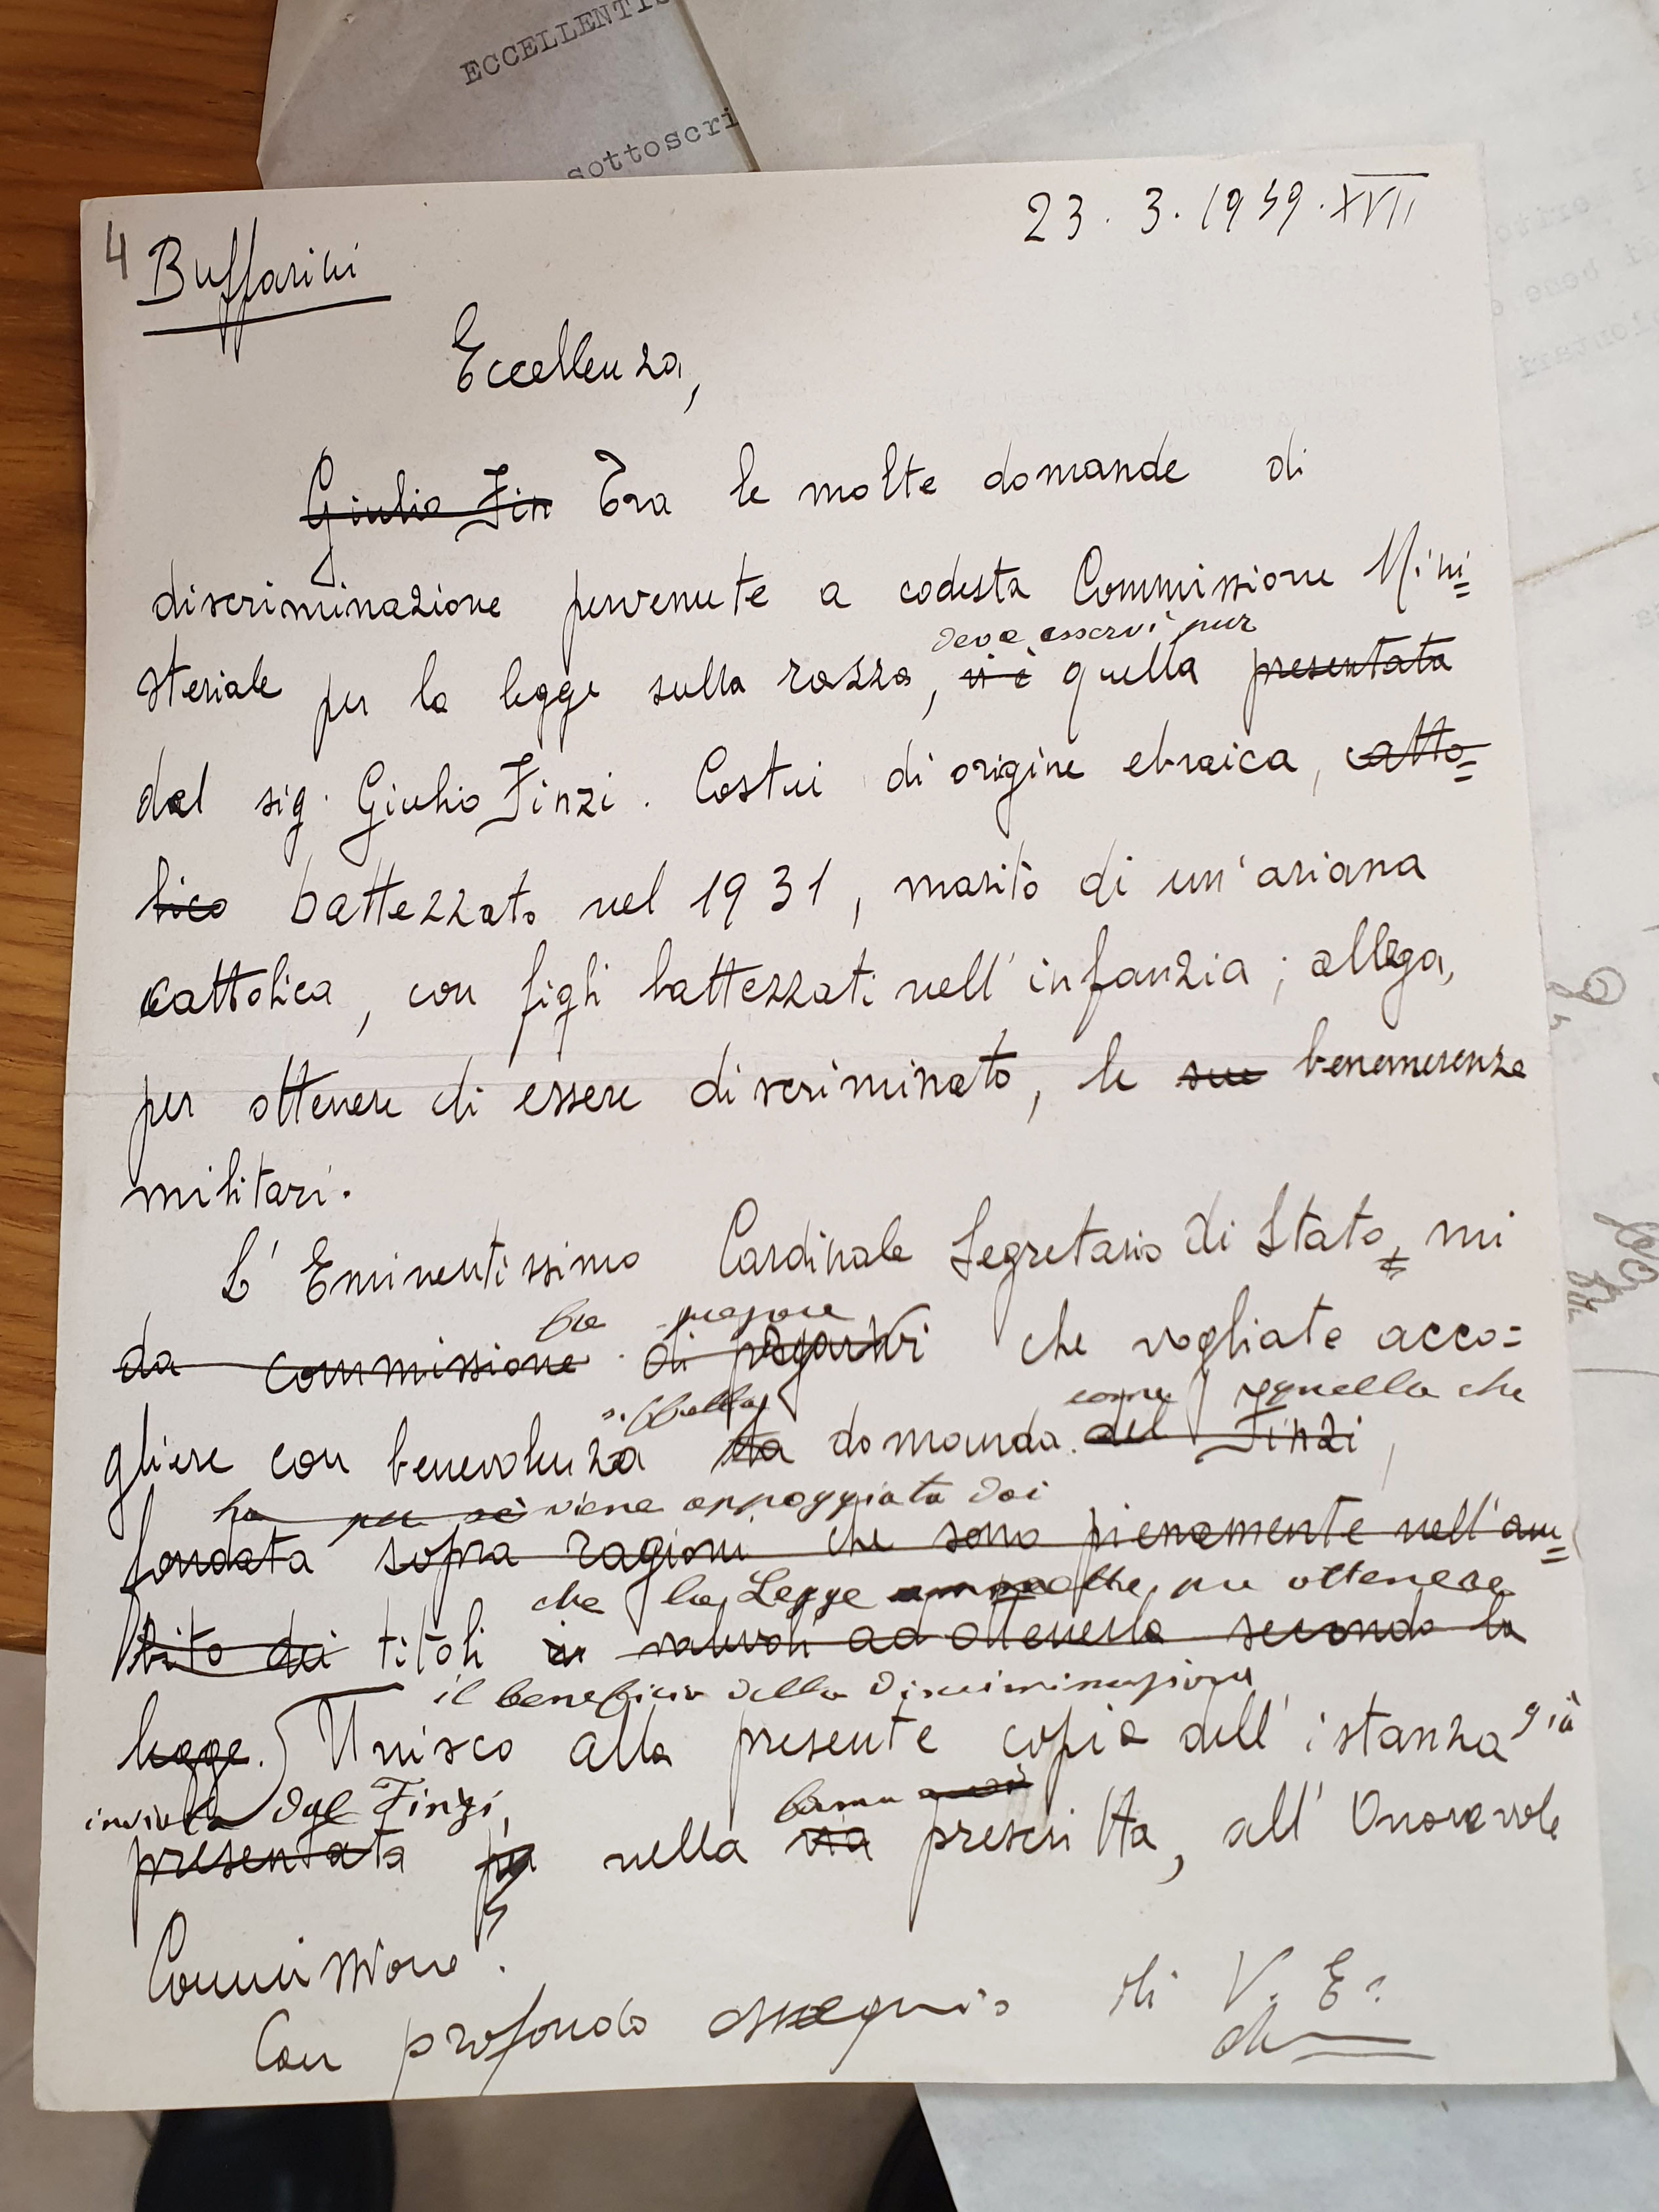 ECCELLENTIS
sottoscri
23.3.1939.XVII
4
Buffarini
Eccellenza,
Giulio Fin Tra le molte domande di
discriminazione pervenute a codesta Commissione Mini=
deve esservi pur
steriale per la legge sulla razza, vi è quella presentata
dal sig. Giulio Finzi. Costui di origine ebraica, catto=
lico battezzato nel 1931, marito di un'ariana
cattolica, con figli battezzati nell'infanzia; allega,
per ottenere di essere discriminato, le sue benemerenze
militari.
L'Eminentissimo Cardinale Segretario di Stato, mi
da commissione di pregarvi che vogliate acco=
come quella che
gliere con benevolenza la domanda del Finzi,
ha per sè viene appoggiata dai
fondata sopra ragioni che sono pienamente nell'am=
che la Legge per ottenere
bito dei titoli valevoli ad ottenerla secondo la
il beneficio della discriminazione
legge. Unisco alla presente copia dell'istanza già
inviata dal Finzi,
presentata nella via prescritta, all'Onorevole
Commissione.
Con profondo ossequio di V. E.